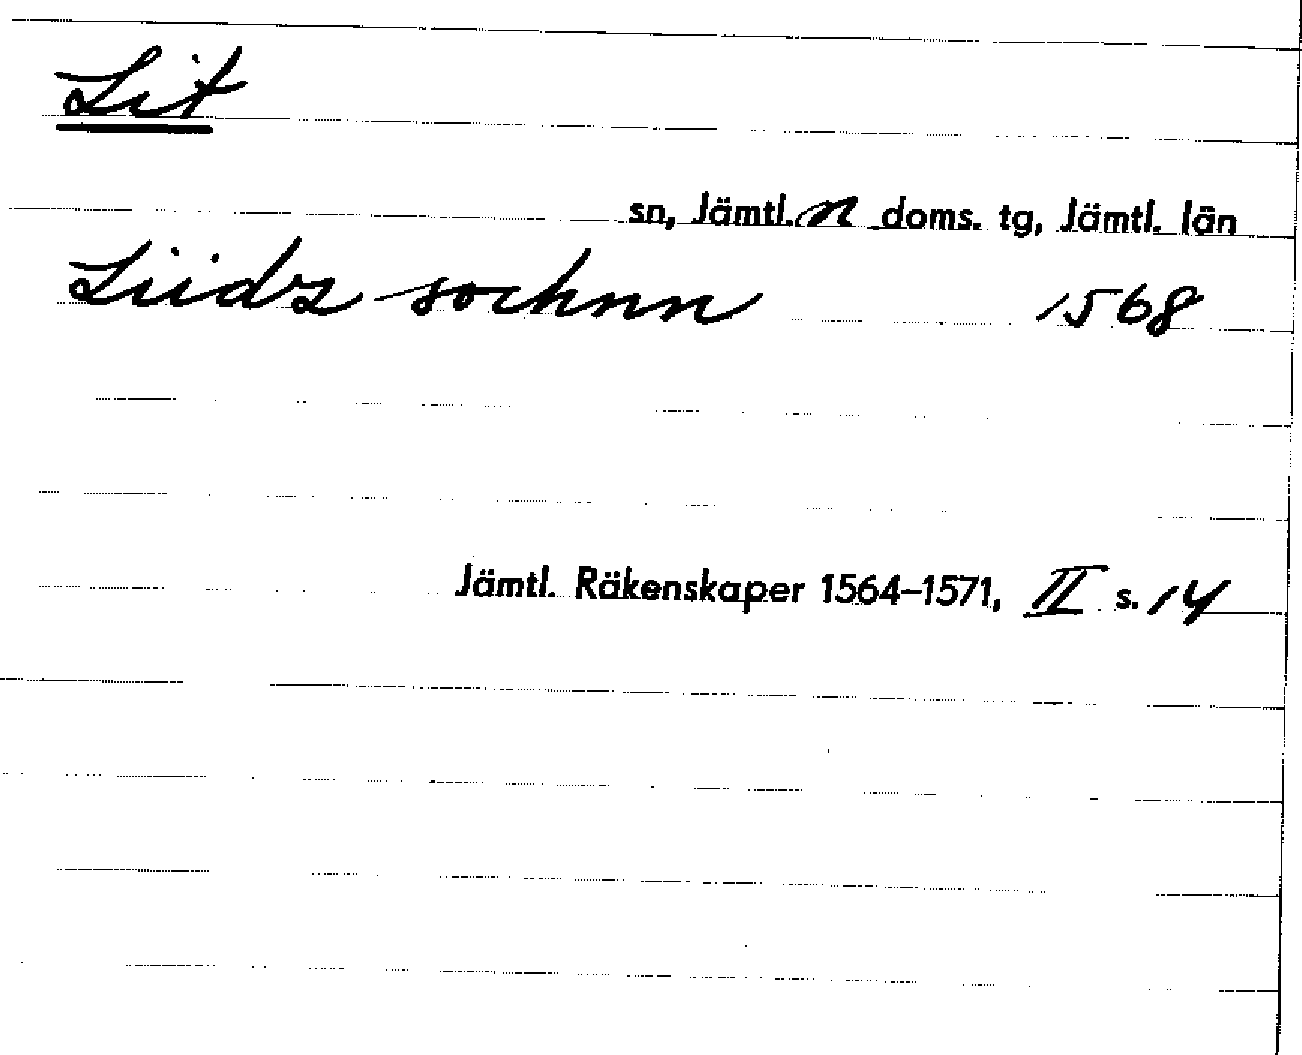 Lit
sn, Jämtl. n doms. tg, Jämtl. län
Liidz sochnn 1568
Jämtl. Räkenskaper 1564–1571, II s. 14